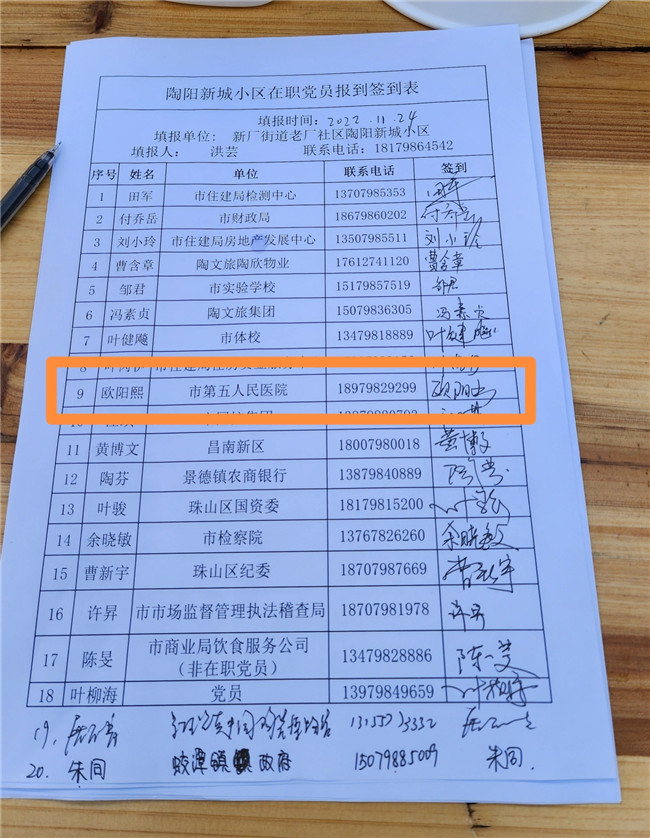 陶阳新城小区在职党员报到签到表
填报时间：2022.11.24
填报单位： 新厂街道老厂社区陶阳新城小区
填报人： 洪芸 联系电话：18179864542
序号 姓名 单位 联系电话 签到
1 田军 市住建局检测中心 13707985353 田军
2 付乔岳 市财政局 18679860202 付乔岳
3 刘小玲 市住建局房地产发展中心 13507985511 刘小玲
4 曹含章 陶文旅陶欣物业 17612741120 曹含章
5 邹君 市实验学校 15179857519 邹君
6 冯素贞 陶文旅集团 15079836305 冯素贞
7 叶健飚 市体校 13479818889 叶健飚
8
9 欧阳熙 市第五人民医院 18979829299 欧阳
10
11 黄博文 昌南新区 18007980018 黄博文
12 陶芬 景德镇农商银行 13879840889
13 叶骏 珠山区国资委 18179815200 叶骏
14 余晓敏 市检察院 13767826260 余晓敏
15 曹新宇 珠山区纪委 18707987669 曹新宇
16 许昇 市市场监督管理执法稽查局 18707981978 许昇
17 陈旻 市商业局饮食服务公司 13479828886 陈旻
（非在职党员）
18 叶柳海 党员 13979849659 叶柳海
19.
20. 朱同 蛟潭镇 政府 15079885009 朱同.